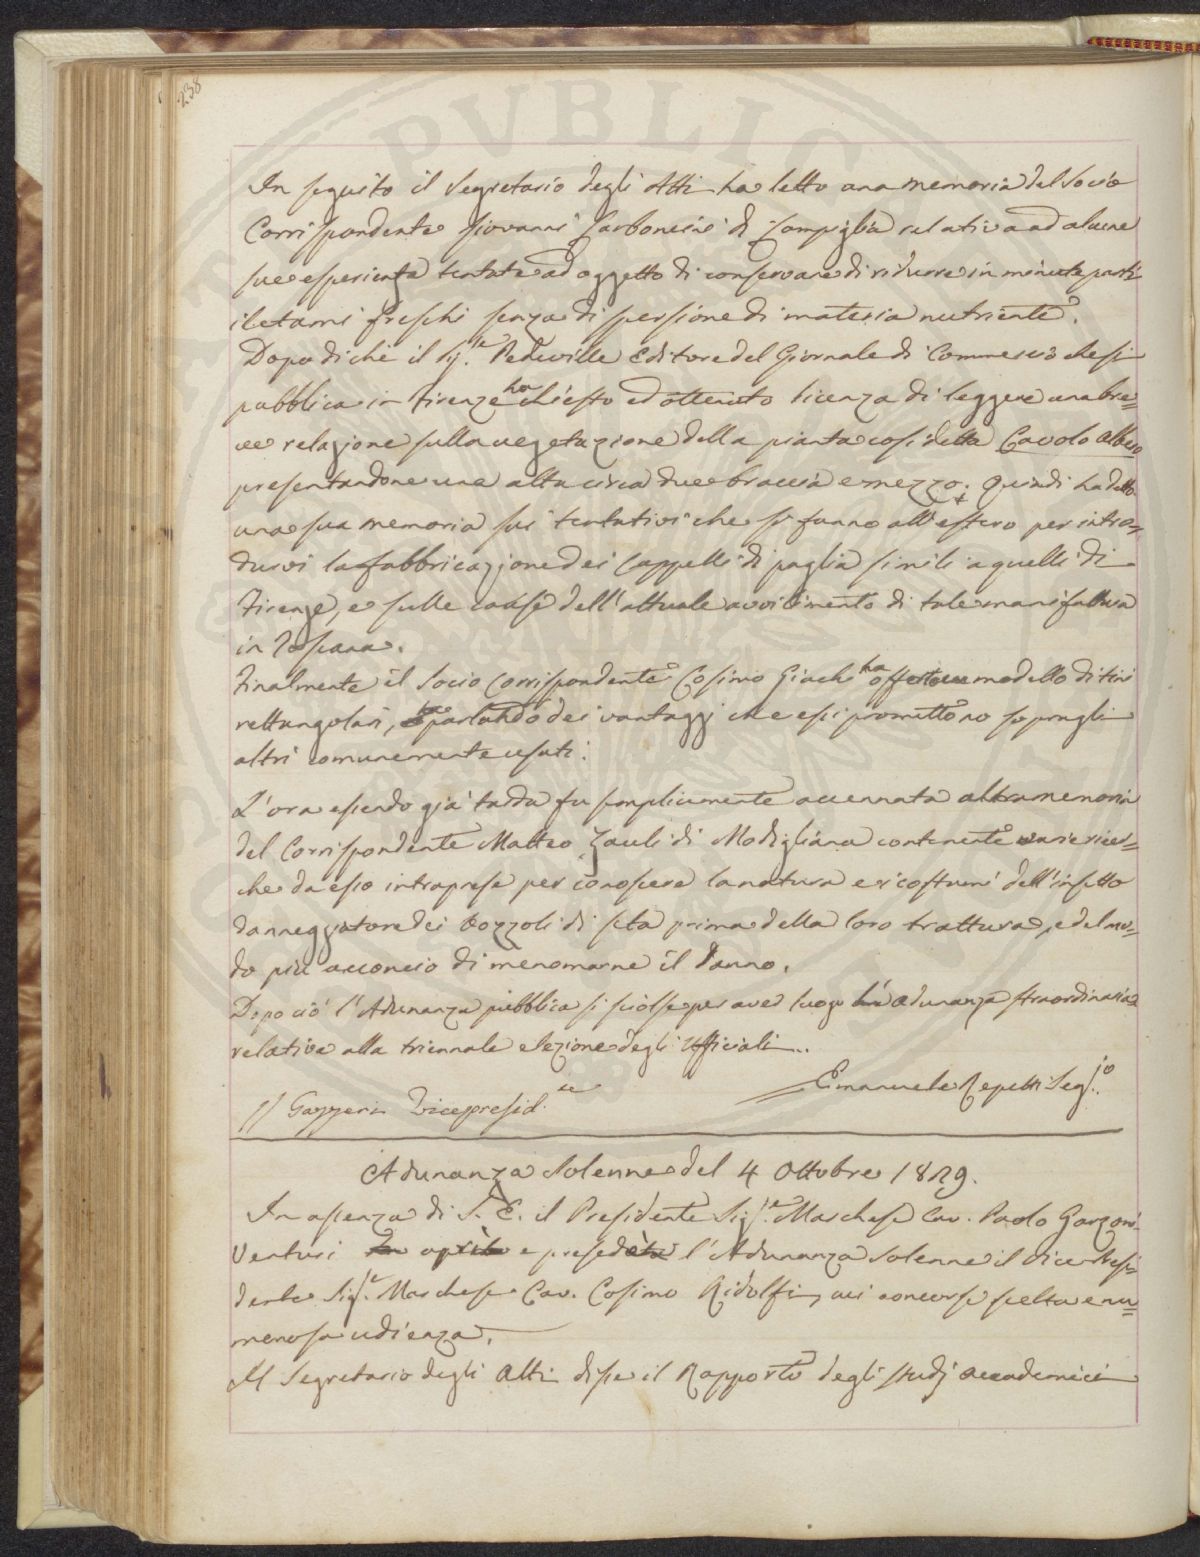 238
In seguito il Segretario degli Atti ha letto una memoria del Socio
Corrispondente Giovanni Carboncini di Campiglia relativa ad alcune
sue esperienze tentate ad oggetto di conservare di ridurre in minute parti
i letami freschi senza dispersione di materia nutriente.
Dopo di chè il Sig.re Pedeville Editore del Giornale di Commercio che si
pubblica in Firenze ha chiesto ed ottenuto licenza di leggere una bre=
ve relazione sulla vegetazione della pianta così detta Cavolo albero
presentandone una alta circa due braccia e mezzo. Quindi ha detto
una sua memoria sui tentativi che si fanno all'estero per intro=
durvi la fabbricazione dei Cappelli di paglia simili a quelli di
Firenze, e sulle cause dell'attuale avvilimento di tale manifattura
in Toscana.
Finalmente il Socio Corrispondente Cosimo Giachi ha offerto un modello di tini
rettangolari, parlando dei vantaggi che essi promettono sopra gli
altri comunemente usati.
L'ora essendo già tarda fu semplicemente accennata altra memoria
del Corrispondente Matteo Zauli di Modigliana contenente varie ricer=
che da esso intraprese per conoscere la natura e i costumi dell'insetto
danneggiatore dei bozzoli di seta prima della loro trattura, e del mo=
do più acconcio di menomarne il danno.
Dopo ciò l'Adunanza pubblica si sciolse per aver luogo adunanza straordinaria
relativa alla triennale elezione degli Ufficiali..
Emanuele Repetti Seg.rio
Gazzeri Vicepresid.te
Adunanza Solenne del 4 Ottobre 1829.
In assenza di S. E. il Presidente Sig.re Marchese Cav. Paolo Garzoni
Venturi aprì e presedè l'Adunanza solenne il Vice Presi=
dente Sig.re Marchese Cav. Cosimo Ridolfi, cui concorse scelta e nu=
merosa udienza.
Il Segretario degli Atti disse il Rapporto degli studj accademici